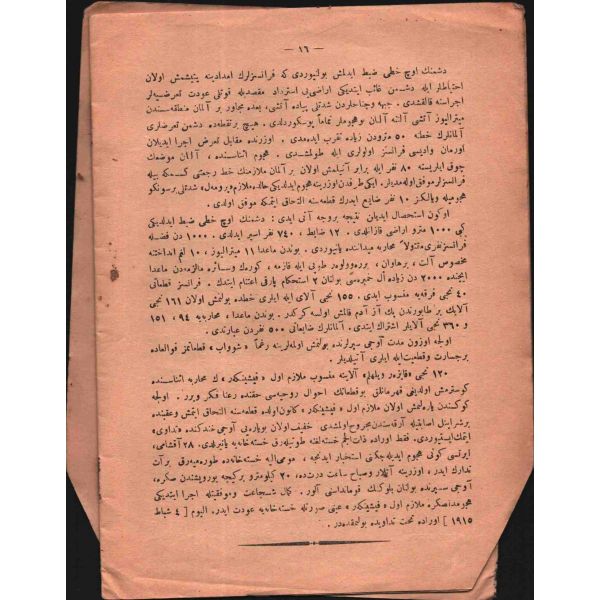 — ١٦ —
دشمنك اوچ خطی ضبط ایدلمش بولنیوردی كه فرانسزلرك امدادینه یتیشمش اولان
احتیاطلر ایله دشمن غائب ایتدیكی اراضی‌یی استرداد مقصدیله قوتلی عودت تعرضیه‌لر
اجراسنه قالقشدی . جبهه وجناحلردن شدتلی پیاده آتشی، بعده مجاور بر آلمان منطقه‌سندن
میترالیوز آتشی آلتنه آلنان بوهجوملر تماماً پوسكورتلدی . هیچ بر نقطه‌ده دشمن تعرضلری
آلمانلرك خطنه ٥٠ مترودن زیاده تقرب ایده‌مدی . اوزرنده مقابل تعرض اجرا ایدیلان
اورمان وادیسی فرانسز اولولری ایله طولمشدی . هجوم اثناسنده ، آلمان موضعك
چوق ایلریسنه ٨٠ نفر ایله برابر آتیلمش اولان بر آلمان ملازمنك خط رجعتی كسمكه بیله
فرانسزلر موفق اوله‌مدیلر. ایكی طرفدن اوزرینه هجوم ایدلدیكی حالده ملازم شدتلی برسونكو
هجومیله ویالكز ١٠ نفر ضایع ایدرك قطعه‌سنه التحاق ایتمكه موفق اولدی .
اوكون استحصال ایدیلن نتیجه بروجه آتی ایدی : دشمنك اوچ خطی ضبط ایدلدیكی
كبی ١٠٠٠ مترو اراضی قازانلدی . ١٢ ضابط ، ٧٤٠ نفر اسیر ایدلدی . ١٠٠٠ دن فضله
فرانسز نفری مقتولاً محاربه میداننده یاتیوردی . بوندن ماعدا ١١ میترالیوز ، ١٠ لغم انداختنه
مخصوص آلت ، برهاوان ، برره‌وولوه‌ر طوپی ایله قازمه ، كورك وسائره مالزمه‌دن ماعدا
ایچنده ٢٠٠٠ دن زیاده ال خمبره‌سی بولنان ٢ استحكام پارقی اغتنام ایتدك . فرانسز قطعاتی
٤٠ نجی فرقه‌یه منسوب ایدی. ١٥٥ نجی آلای ایله ایلری خطده بولنمش اولان ١٦١ نجی
آلایك بر طابورندن پك آز آدم قالمش اولسه كركدر. بوندن ماعدا ، محاربه‌یه ٩٤، ١٥١
و ٣٦٠ نجی آلایلر اشتراك ایتدی. آلمانلرك ضایعاتی ٥٠٠ نفردن عبارتدی .
اولجه اوزون مدت آوجی سپرلرنده بولنمش اولمه‌لرینه رغماً «شوواب» قطعاتمز فوق‌العاده
برجسارت وقطعیت‌له ایلری آتیلدیلر .
١٢٠ نجی «قایزه‌ر ویلهلم» آلاینه منسوب ملازم اول «فیشینكر»ك محاربه اثناسنده
كوسترمش اولدیغی قهرمانلق بوقطعاتك احوال روحیه‌سی حقنده رعنا فكر ویرر . اولجه
كوكسندن یاره‌لنمش اولان ملازم اول «فیشینكر» كانون اولده قطعه‌سنه التحاق ایتمش وعقبنده
برشراپنل اصابتیله آرقه‌سندن مجروح اولمشدی . خفیف اولان بویاره‌یی آوجی خندكنده «تداوی»
ایتمك ایستیوردی. فقط اوراده ذات‌الجم خسته‌لغنه طوتیله‌رق خسته‌خانه‌یه یاتیرلدی. ٢٨ آقشامی،
ایرتسی كونی هجوم ایدیله‌جكنی استخبار ایدنجه ، مومی‌الیه خسته‌خانه‌ده طوره‌میه‌رق برآت
تدارك ایدر ، اوزرینه آتلار وصباح ساعت درتده، ٢٠ كیلومترو بركیجه یورویشندن صكره،
آوجی سپرنده بولنان بلوكنك قومانداسنی آلور. كمال شجاعت وموفقیتله اجرا ایتدیكی
هجومدنصكره ملازم اول «فیشینكر» عینی صورتله خسته‌خانه‌یه عودت ایدر. الیوم [ ٤ شباط
١٩١٥ ] اوراده تحت تداویده بولنمقده‌در .